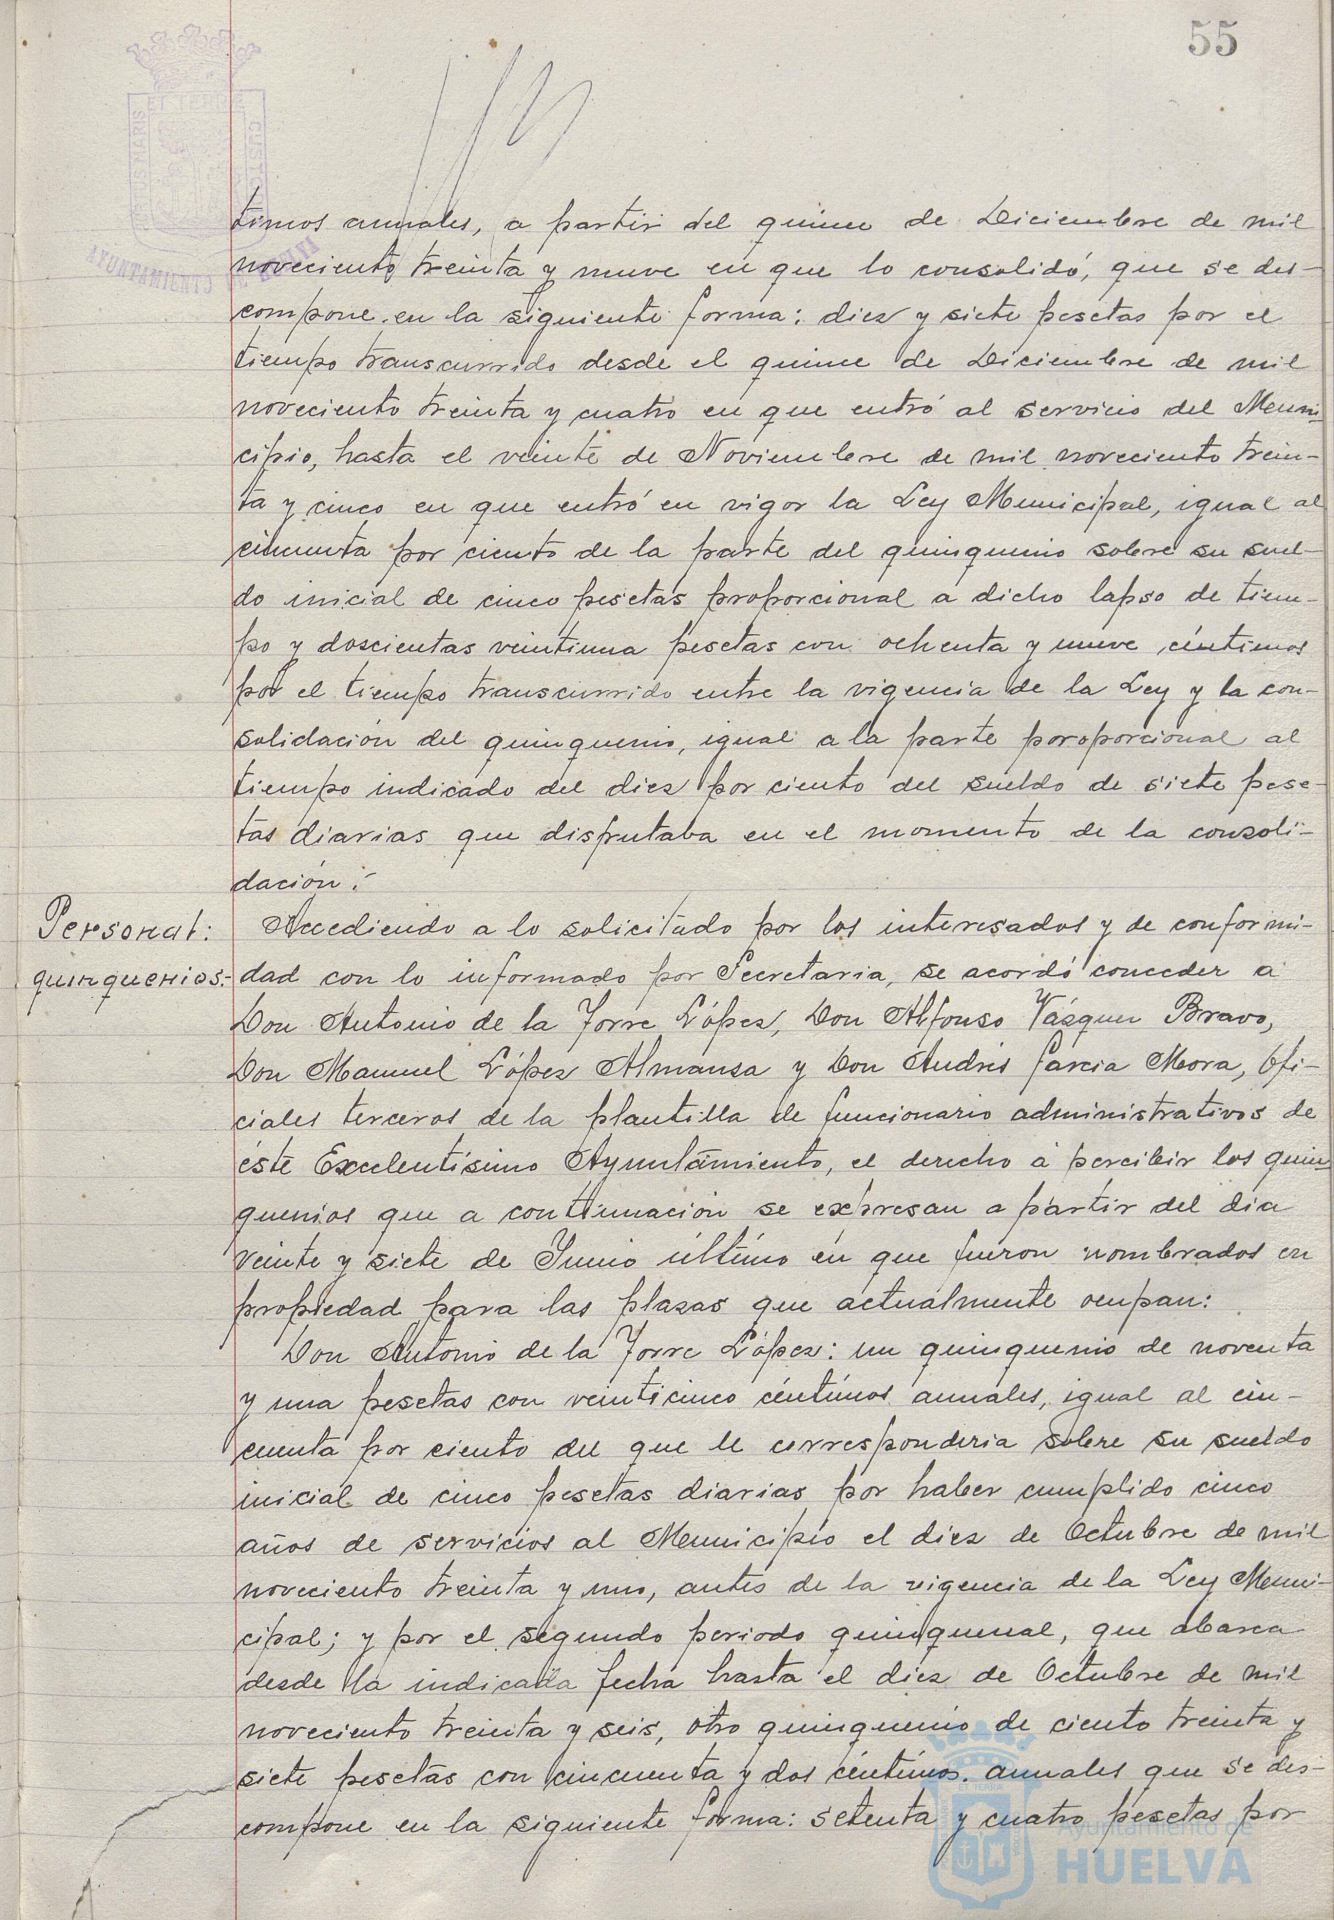 55
PORTUS MARIS ET TERRAE CUSTODIA
AYUNTAMIENTO DE HUELVA
timos anuales, a partir del quince de Diciembre de mil
noveciento treinta y nueve en que lo consolidó, que se des-
compone en la siguiente forma: diez y siete pesetas por el
tiempo transcurrido desde el quince de Diciembre de mil
noveciento treinta y cuatro en que entró al servicio del Muni-
cipio, hasta el veinte de Noviembre de mil noveciento trein-
ta y cinco en que entró en vigor la Ley Municipal, igual al
cincuenta por ciento de la parte del quinquenio sobre su suel-
do inicial de cinco pesetas proporcional a dicho lapso de tiem-
po y doscientas veintiuna pesetas con ochenta y nueve céntimos
por el tiempo transcurrido entre la vigencia de la Ley y la con-
solidación del quinquenio, igual a la parte poroporcional al
tiempo indicado del diez por ciento del sueldo de siete pese-
tas diarias que disfrutaba en el momento de la consoli-
dación.-
Personal:
quinquenios.-
Accediendo a lo solicitado por los interesados y de conformi-
dad con lo informado por Secretaria, se acordó conceder a
Don Antonio de la Torre López, Don Alfonso Vázquez Bravo,
Don Manuel López Almansa y Don Andrés Garcia Mora, Ofi-
ciales terceros de la plantilla de funcionario administrativos de
éste Excelentísimo Ayuntamiento, el derecho a percibir los quin-
quenios que a continuación se expresan a partir del dia
veinte y siete de Junio último en que fueron nombrados en
propiedad para las plazas que actualmente ocupan:
Don Antonio de la Torre López: un quinquenio de noventa
y una pesetas con veinticinco céntimos anuales, igual al cin-
cuenta por ciento del que le corresponderia sobre su sueldo
inicial de cinco pesetas diarias por haber cumplido cinco
años de servicios al Municipio el diez de Octubre de mil
noveciento treinta y uno, antes de la vigencia de la Ley Muni-
cipal; y por el segundo periodo quinquenal, que abarca
desde la indicada fecha hasta el diez de Octubre de mil
noveciento treinta y seis, otro quinquenio de ciento treinta y
siete pesetas con cincuenta y dos céntimos anuales que se des-
compone en la siguiente forma: setenta y cuatro pesetas por
Ayuntamiento de
HUELVA